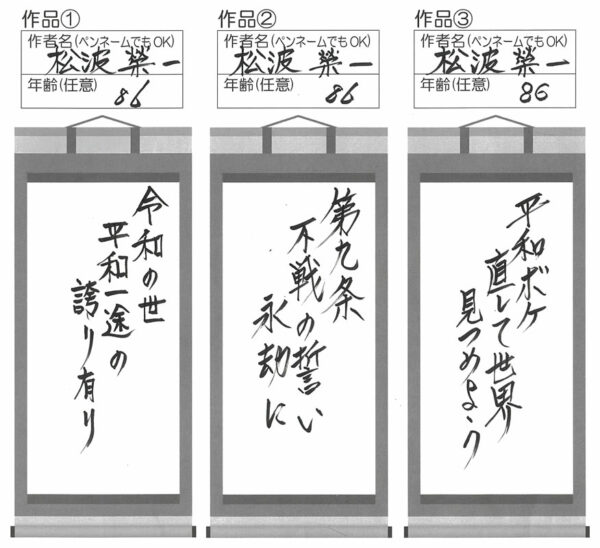 作品①
作者名(ペンネームでもOK)
松波榮一
年齢(任意)
86
令和の世
平和一途の
誇り有り
作品②
作者名(ペンネームでもOK)
松波榮一
年齢(任意)
86
第九条
不戦の誓い
永劫に
作品③
作者名(ペンネームでもOK)
松波榮一
年齢(任意)
86
平和ボケ
直して世界
見つめよう